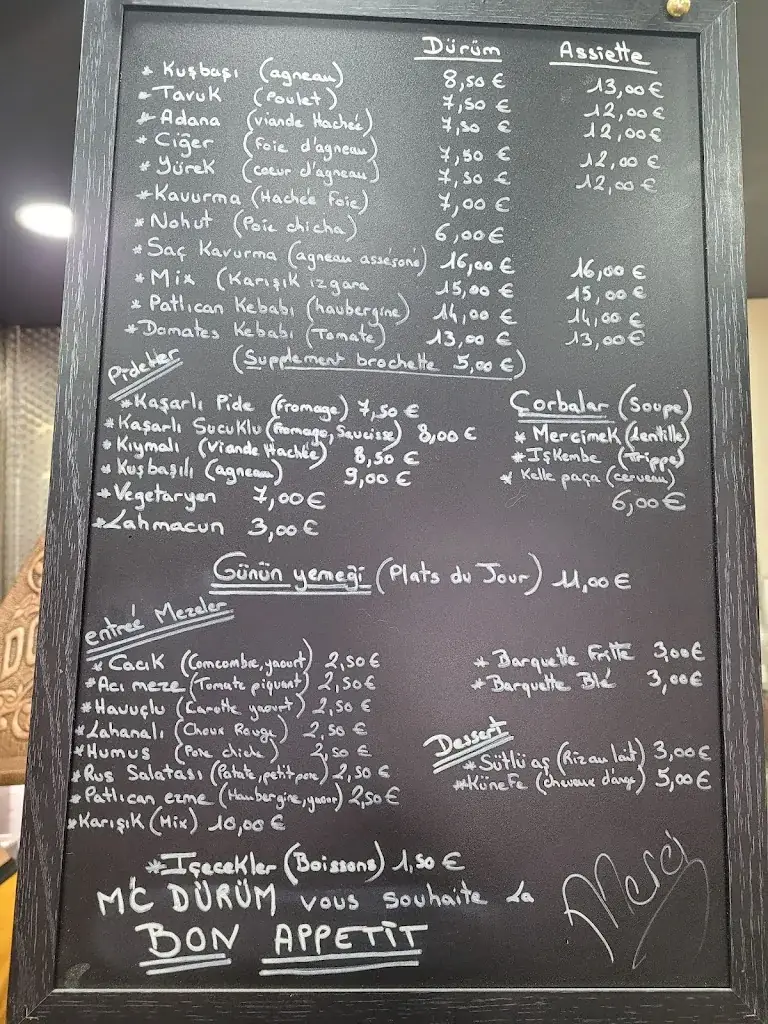 Dürüm Assiette
* Kuşbaşı (agneau) 8,50 € 13,00 €
* Tavuk (Poulet) 7,50 € 12,00 €
* Adana (viande Hachée) 7,50 € 12,00 €
* Ciğer (Foie d'agneau) 7,50 € 12,00 €
* Yürek (coeur d'agneau) 7,50 € 12,00 €
* Kavurma (Hachée Foie) 7,00 €
* Nohut (Poie chicha) 6,00 €
* Saç Kavurma (agneau assésoné) 16,00 € 16,00 €
* Mix (Karışık izgara 15,00 € 15,00 €
* Patlıcan Kebabı (haubergine) 14,00 € 14,00 €
* Domates Kebabı (Tomate) 13,00 € 13,00 €
(Supplement brochette 5,00 €)
Pideler
* Kaşarlı Pide (fromage) 7,50 €
* Kaşarlı Sucuklu (fromage, Saucisse) 8,00 €
* Kıymalı (Viande Hachée) 8,50 €
* Kuşbaşılı (agneau) 9,00 €
* Vegetaryen 7,00 €
* Lahmacun 3,00 €
Çorbalar (Soupe)
* Mercimek (Lentille)
* Işkembe (Trippe)
* Kelle paça (cerveau)
6,00 €
Günün yemeği (Plats du Jour) 11,00 €
entreé Mezeler
* Cacık (Comcombre, yaourt) 2,50 €
* Acı meze (Tomate piquant) 2,50 €
* Havuçlu (Carotte yaourt) 2,50 €
* Lahanalı (Choux Rouge) 2,50 €
* Humus (Poie chiche) 2,50 €
* Rus Salatası (Patate, petit pore) 2,50 €
* Patlıcan ezme (Haubergine, yaour) 2,50 €
* Karışık (Mix) 10,00 €
* Barquette Fritte 3,00 €
* Barquette Blé 3,00 €
Dessert
* Sütlü aş (Riz au lait) 3,00 €
* Künefe (cheveux d'ange) 5,00 €
* Içecekler (Boissons) 1,50 €
M'C DÜRÜM vous souhaite La
BON APPETIT
Merci